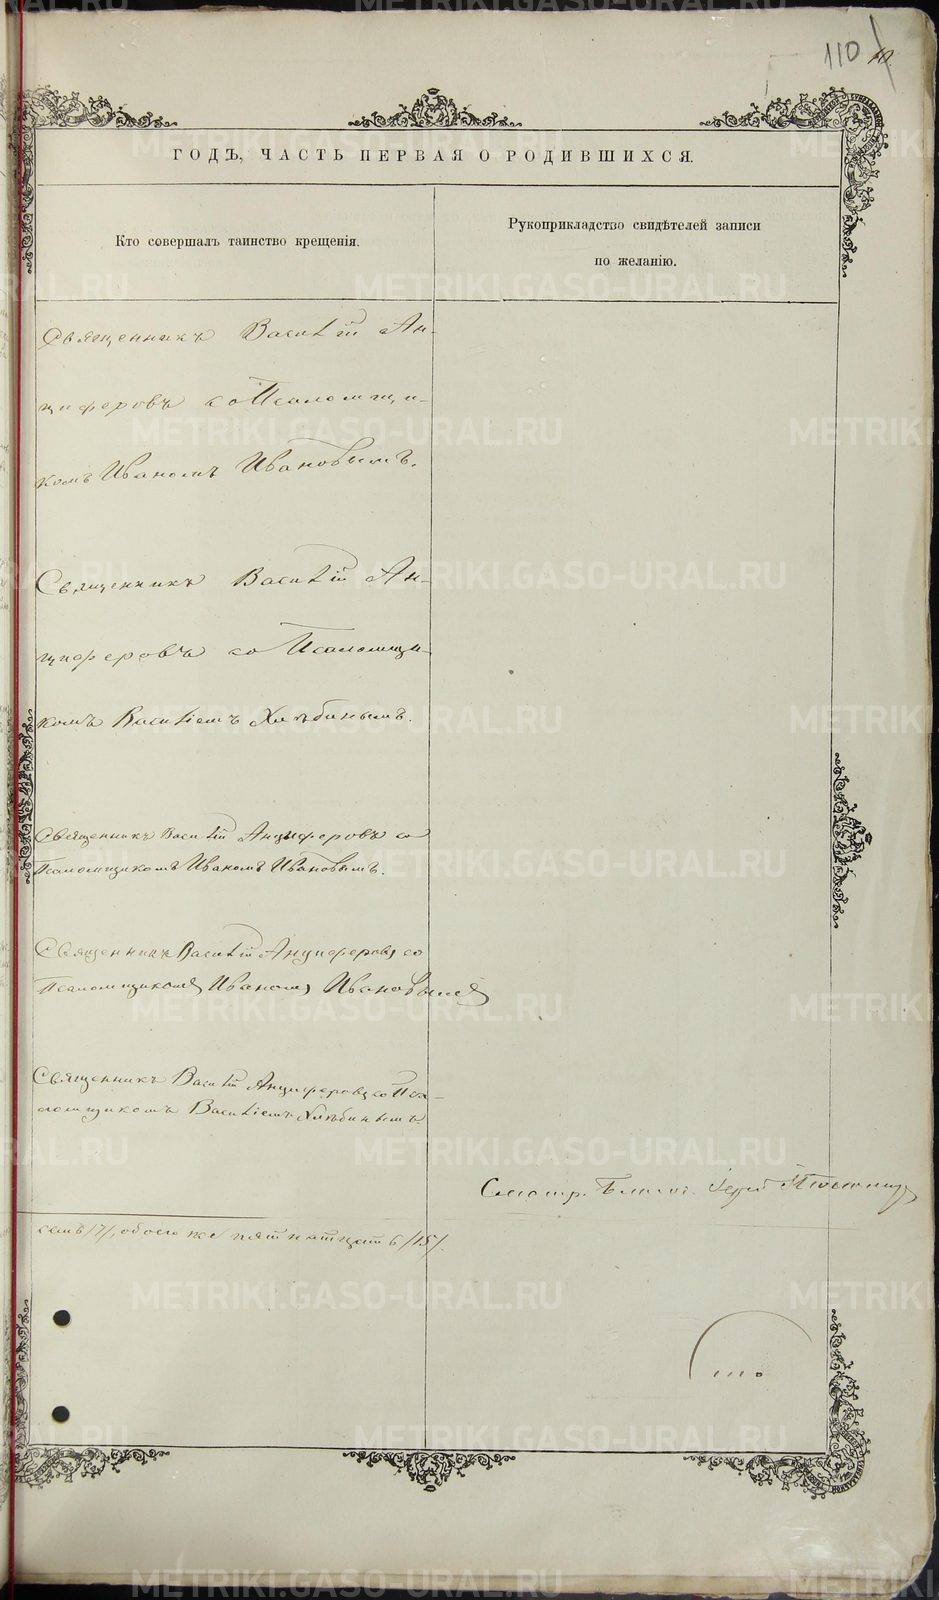 110
ГОДЪ, ЧАСТЬ ПЕРВАЯ О РОДИВШИХСЯ.
Кто совершалъ таинство крещенія.
Рукоприкладство свидѣтелей записи
по желанію.
Священникъ Василій Ан-
циферовъ со Псаломщи-
комъ Иваномъ Ивановымъ.
Священникъ Василій Ан-
циферовъ со Псаломщи-
комъ Василіемъ Хлѣбинымъ.
Священникъ Василій Анциферовъ со
Псаломщикомъ Иваномъ Ивановымъ.
Священникъ Василій Анциферовъ со
Псаломщикомъ Иваномъ Ивановымъ
Священникъ Василій Анциферовъ со Пса-
ломщикомъ Василіемъ Хлѣбинымъ
семь /7/, обоего же пятнатцать /15/.
METRIKI.GASO-URAL.RU